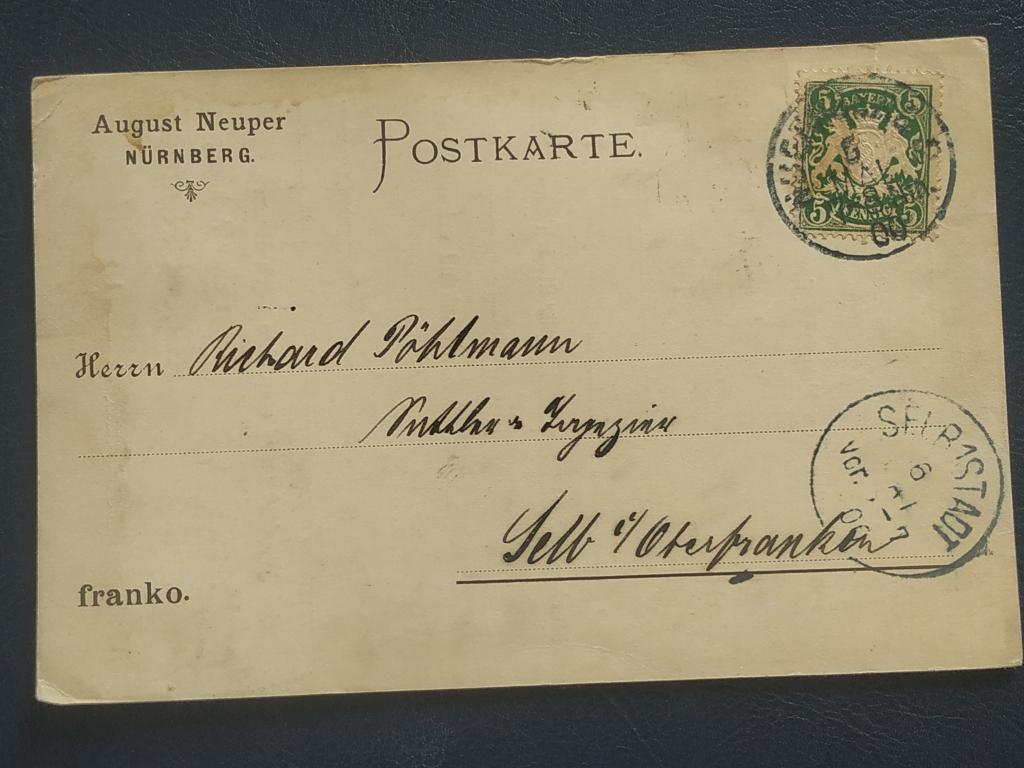 August Neuper
NÜRNBERG.
POSTKARTE.
5 BAYERN 5
5 PFENNIG 5
00
Herrn Richard Pöhlmann
Sattler & Tapezier
Selb i/Oberfranken
SELB STADT
6
Vor.
00
franko.